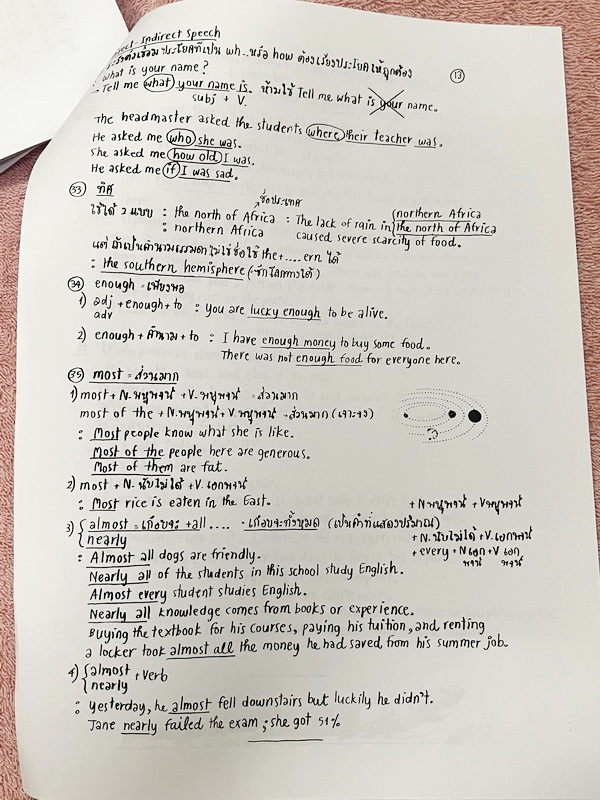 Indirect Speech
ประโยคที่เป็น wh.. หรือ how ต้องเรียงประโยคให้ถูกต้อง
(13)
what is your name?
Tell me what your name is. ห้ามใช้ Tell me what is your name.
subj + V.
The headmaster asked the students where their teacher was.
He asked me who she was.
She asked me how old I was.
He asked me if I was sad.
(33) ทิศ
ชื่อประเทศ
ใช้ได้ 2 แบบ : the north of Africa : The lack of rain in { northern Africa
: northern Africa the north of Africa
caused severe scarcity of food.
แต่ถ้าเป็นคำนามธรรมดาไม่ใช่ชื่อใช้ the+....ern ได้
: the southern hemisphere (ซีกโลกทางใต้)
(34) enough = เพียงพอ
1) adj + enough + to : You are lucky enough to be alive.
adv
2) enough + คำนาม + to : I have enough money to buy some food.
There was not enough food for everyone here.
(35) most = ส่วนมาก
1) most + N. พหูพจน์ + V. พหูพจน์ = ส่วนมาก
most of the + N. พหูพจน์ + V. พหูพจน์ = ส่วนมาก (เจาะจง)
: Most people know what she is like.
Most of the people here are generous.
Most of them are fat.
2) most + N. นับไม่ได้ + V. เอกพจน์
: Most rice is eaten in the East.
3) { almost = เกือบจะ + all .... = เกือบจะทั้งหมด (เป็นคำที่แสดงปริมาณ)
nearly
+ N พหูพจน์ + V พหูพจน์
+ N. นับไม่ได้ + V. เอกพจน์
+ every + N เอกพจน์ + V เอกพจน์
: Almost all dogs are friendly.
Nearly all of the students in this school study English.
Almost every student studies English.
Nearly all knowledge comes from books or experience.
Buying the textbook for his courses, paying his tuition, and renting
a locker took almost all the money he had saved from his summer job.
4) { almost + verb
nearly
: Yesterday, he almost fell downstairs but luckily he didn't.
Jane nearly failed the exam ; she got 51%